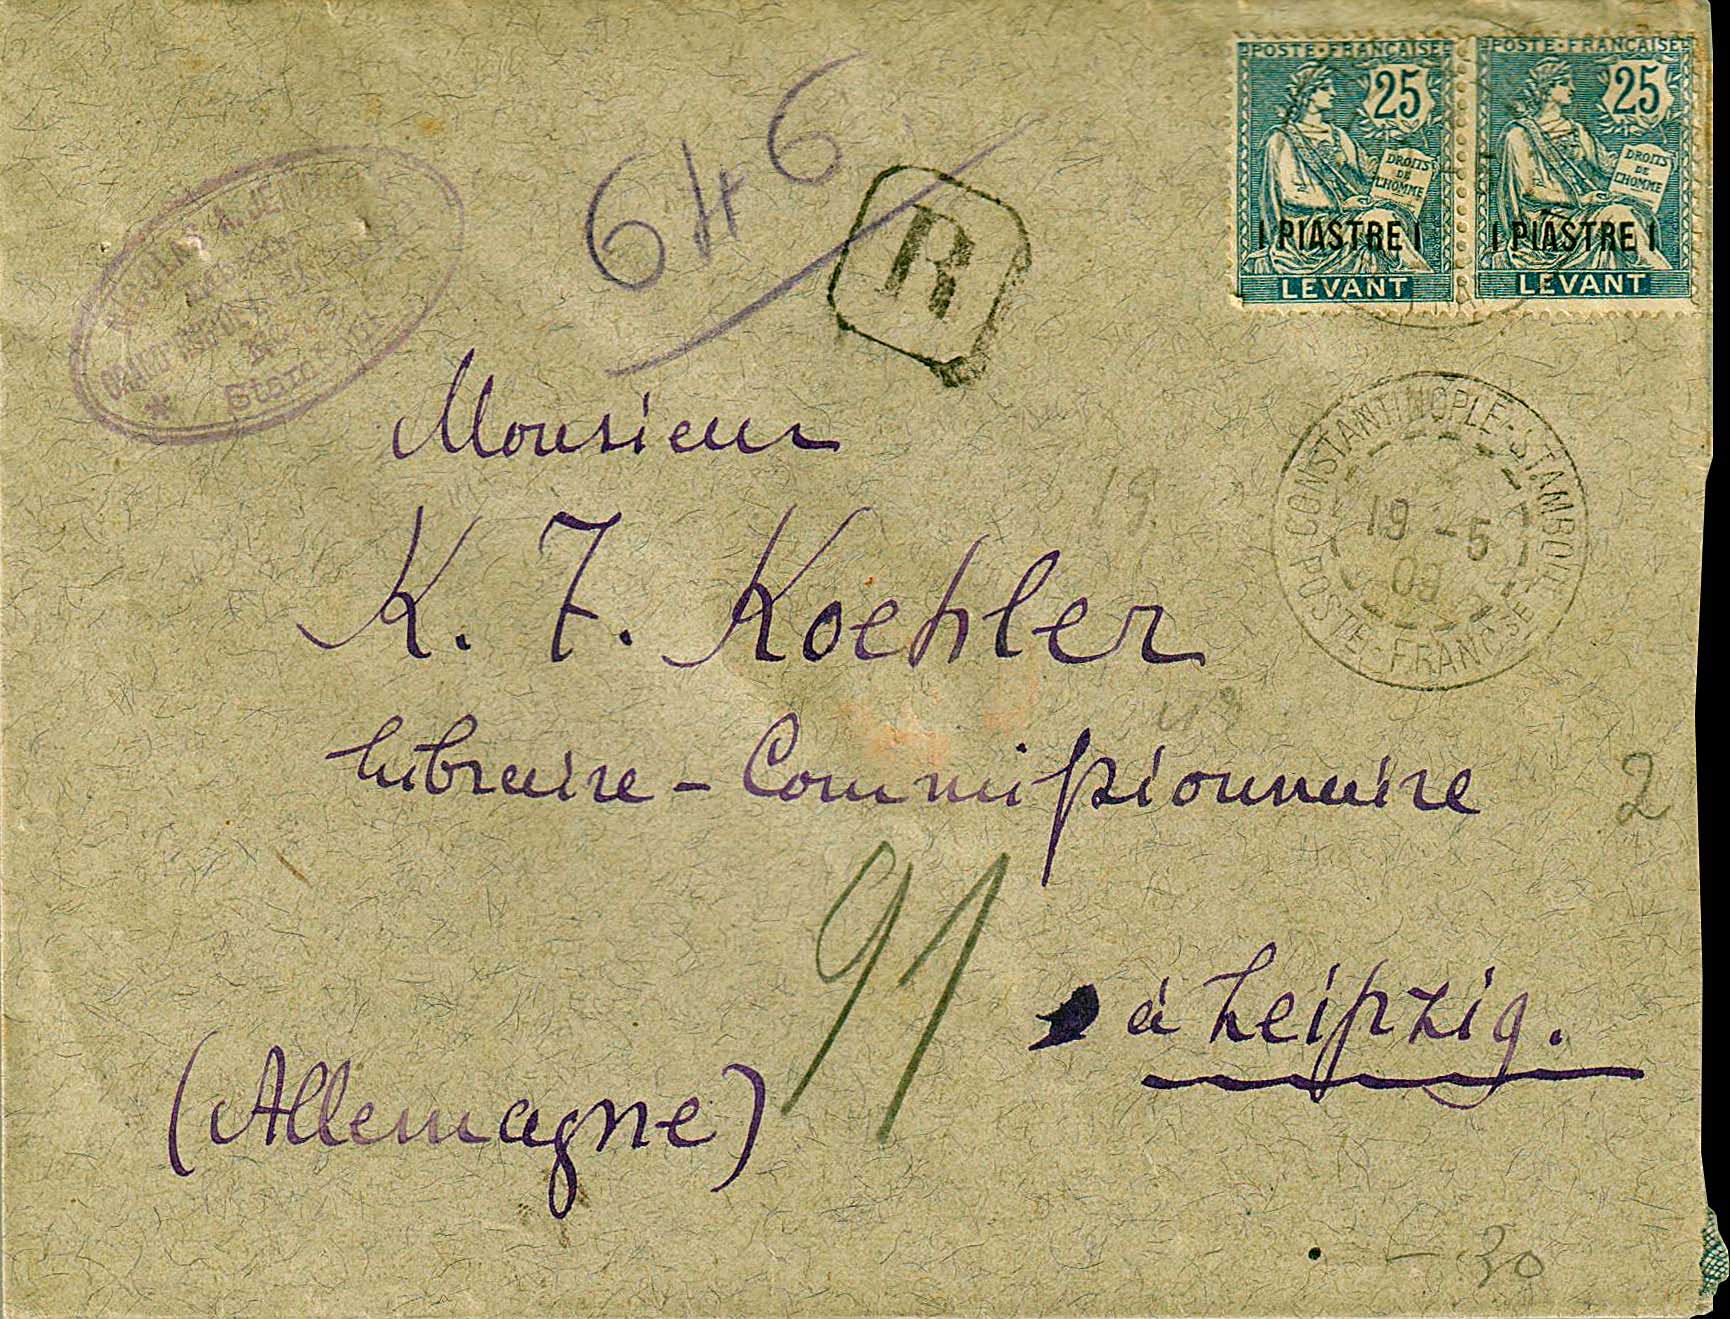 POSTE FRANÇAISE
25
DROITS
DE
L'HOMME
1 PIASTRE 1
LEVANT
POSTE FRANÇAISE
25
DROITS
DE
L'HOMME
1 PIASTRE 1
LEVANT
646
R
NICOLAS A.
CONSTANTINOPLE-STAMBOUL
19 -5
09
POSTE FRANCSE
Monsieur
K. F. Koehler
19
libraire - Commissionnaire
2
91
à Leipzig.
(Allemagne)
- 30